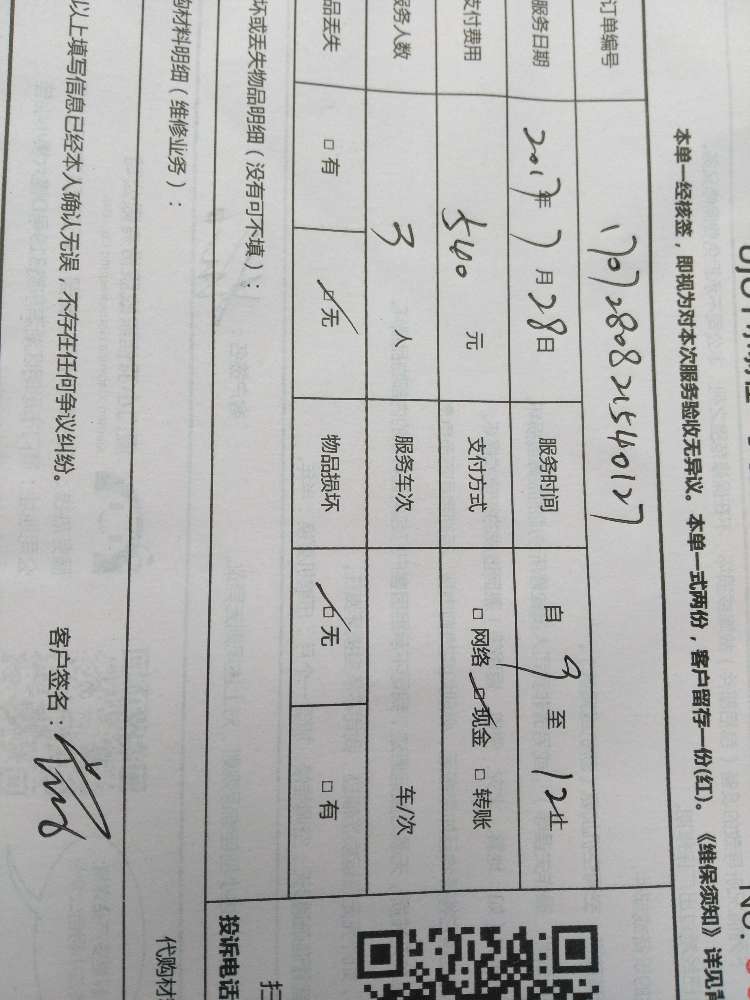 NO.
本单一经核签，即视为对本次服务验收无异议。本单一式两份，客户留存一份(红)。《维保须知》详见背
订单编号 1707280821540127
服务日期 2017年7月28日 服务时间 自9至12止
支付费用 540元 支付方式 □ 网络 □ 现金 □ 转账
服务人数 3人 服务车次 车/次
品丢失 □ 有 □ 无 物品损坏 □ 无 □ 有
坏或丢失物品明细（没有可不填）：
购材料明细（维修业务）：
代购材
以上填写信息已经本人确认无误，不存在任何争议纠纷。 客户签名：
投诉电话
扫